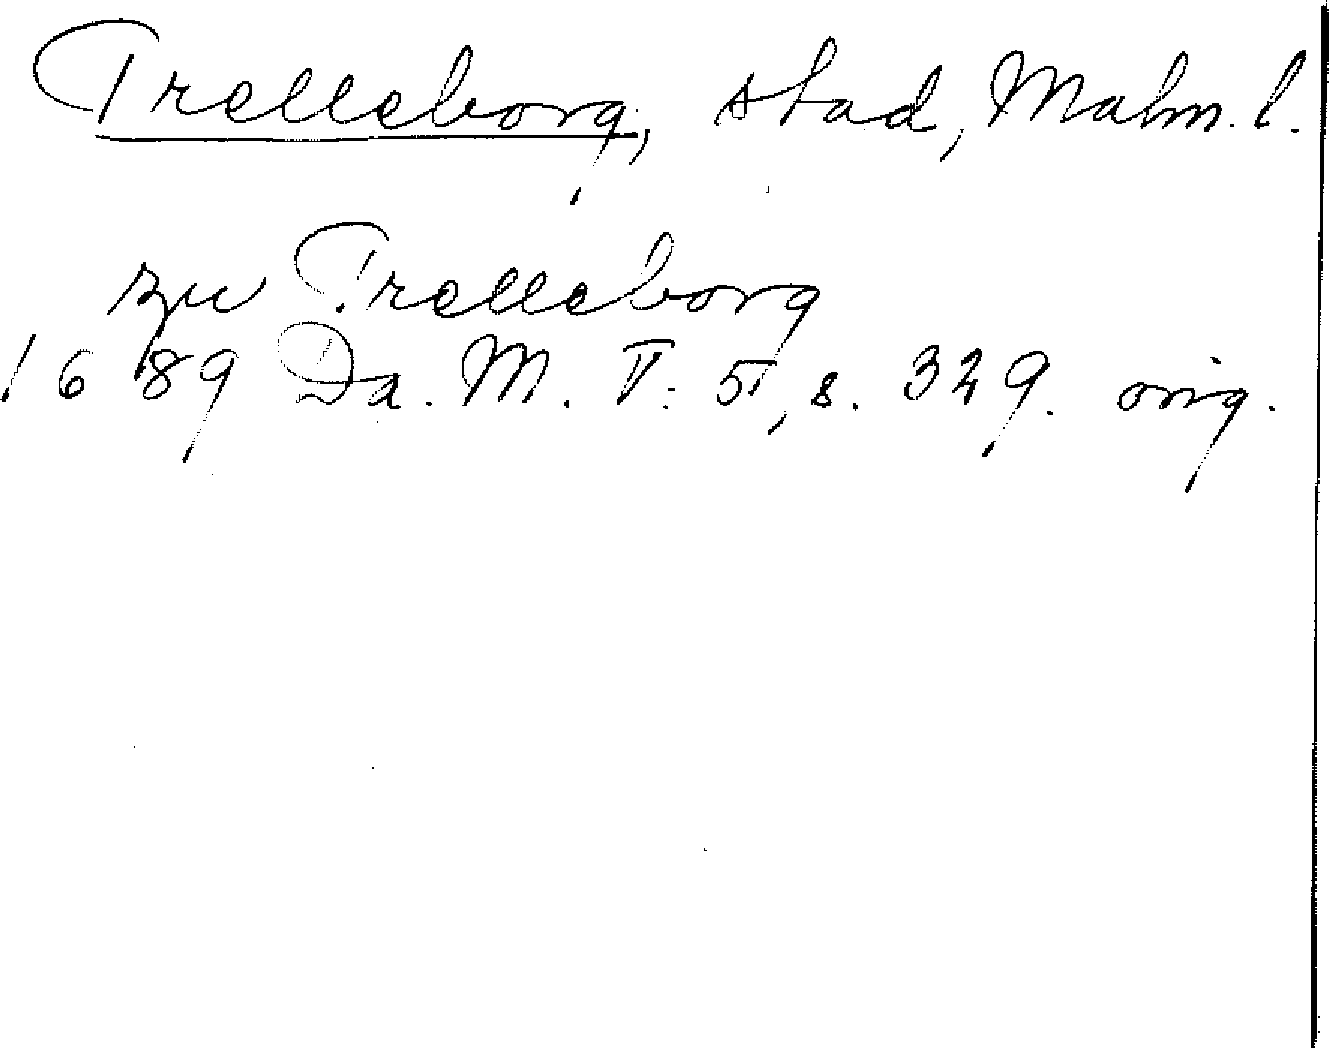 Trelleborg, stad, Malm. l.
zu Trelleborg
1689 Da. M. V: 5, s. 329. orig.